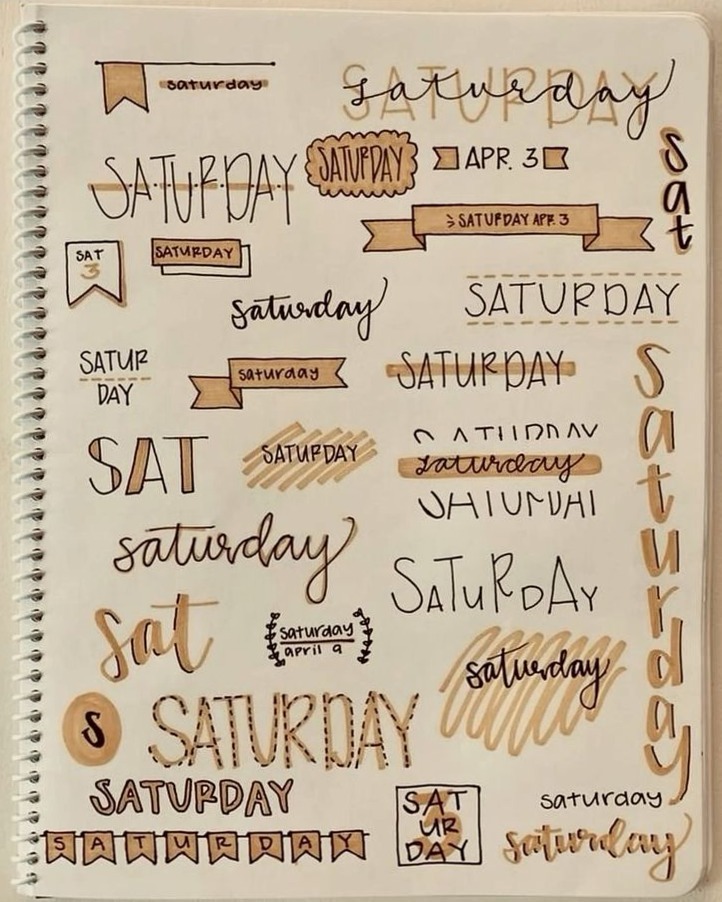 saturday
SATURDAY
saturday
SATURDAY
SATURDAY
APR. 3
sat
SATURDAY APR. 3
SAT
3
SATURDAY
saturday
SATURDAY
SATUR
DAY
saturday
SATURDAY
saturday
SAT
SATURDAY
SATURDAY
saturday
saturday
SATURDAY
sat
saturday
april 9
saturday
S
SATURDAY
SATURDAY
SAT
UR
DAY
3
saturday
saturday
SATURDAY